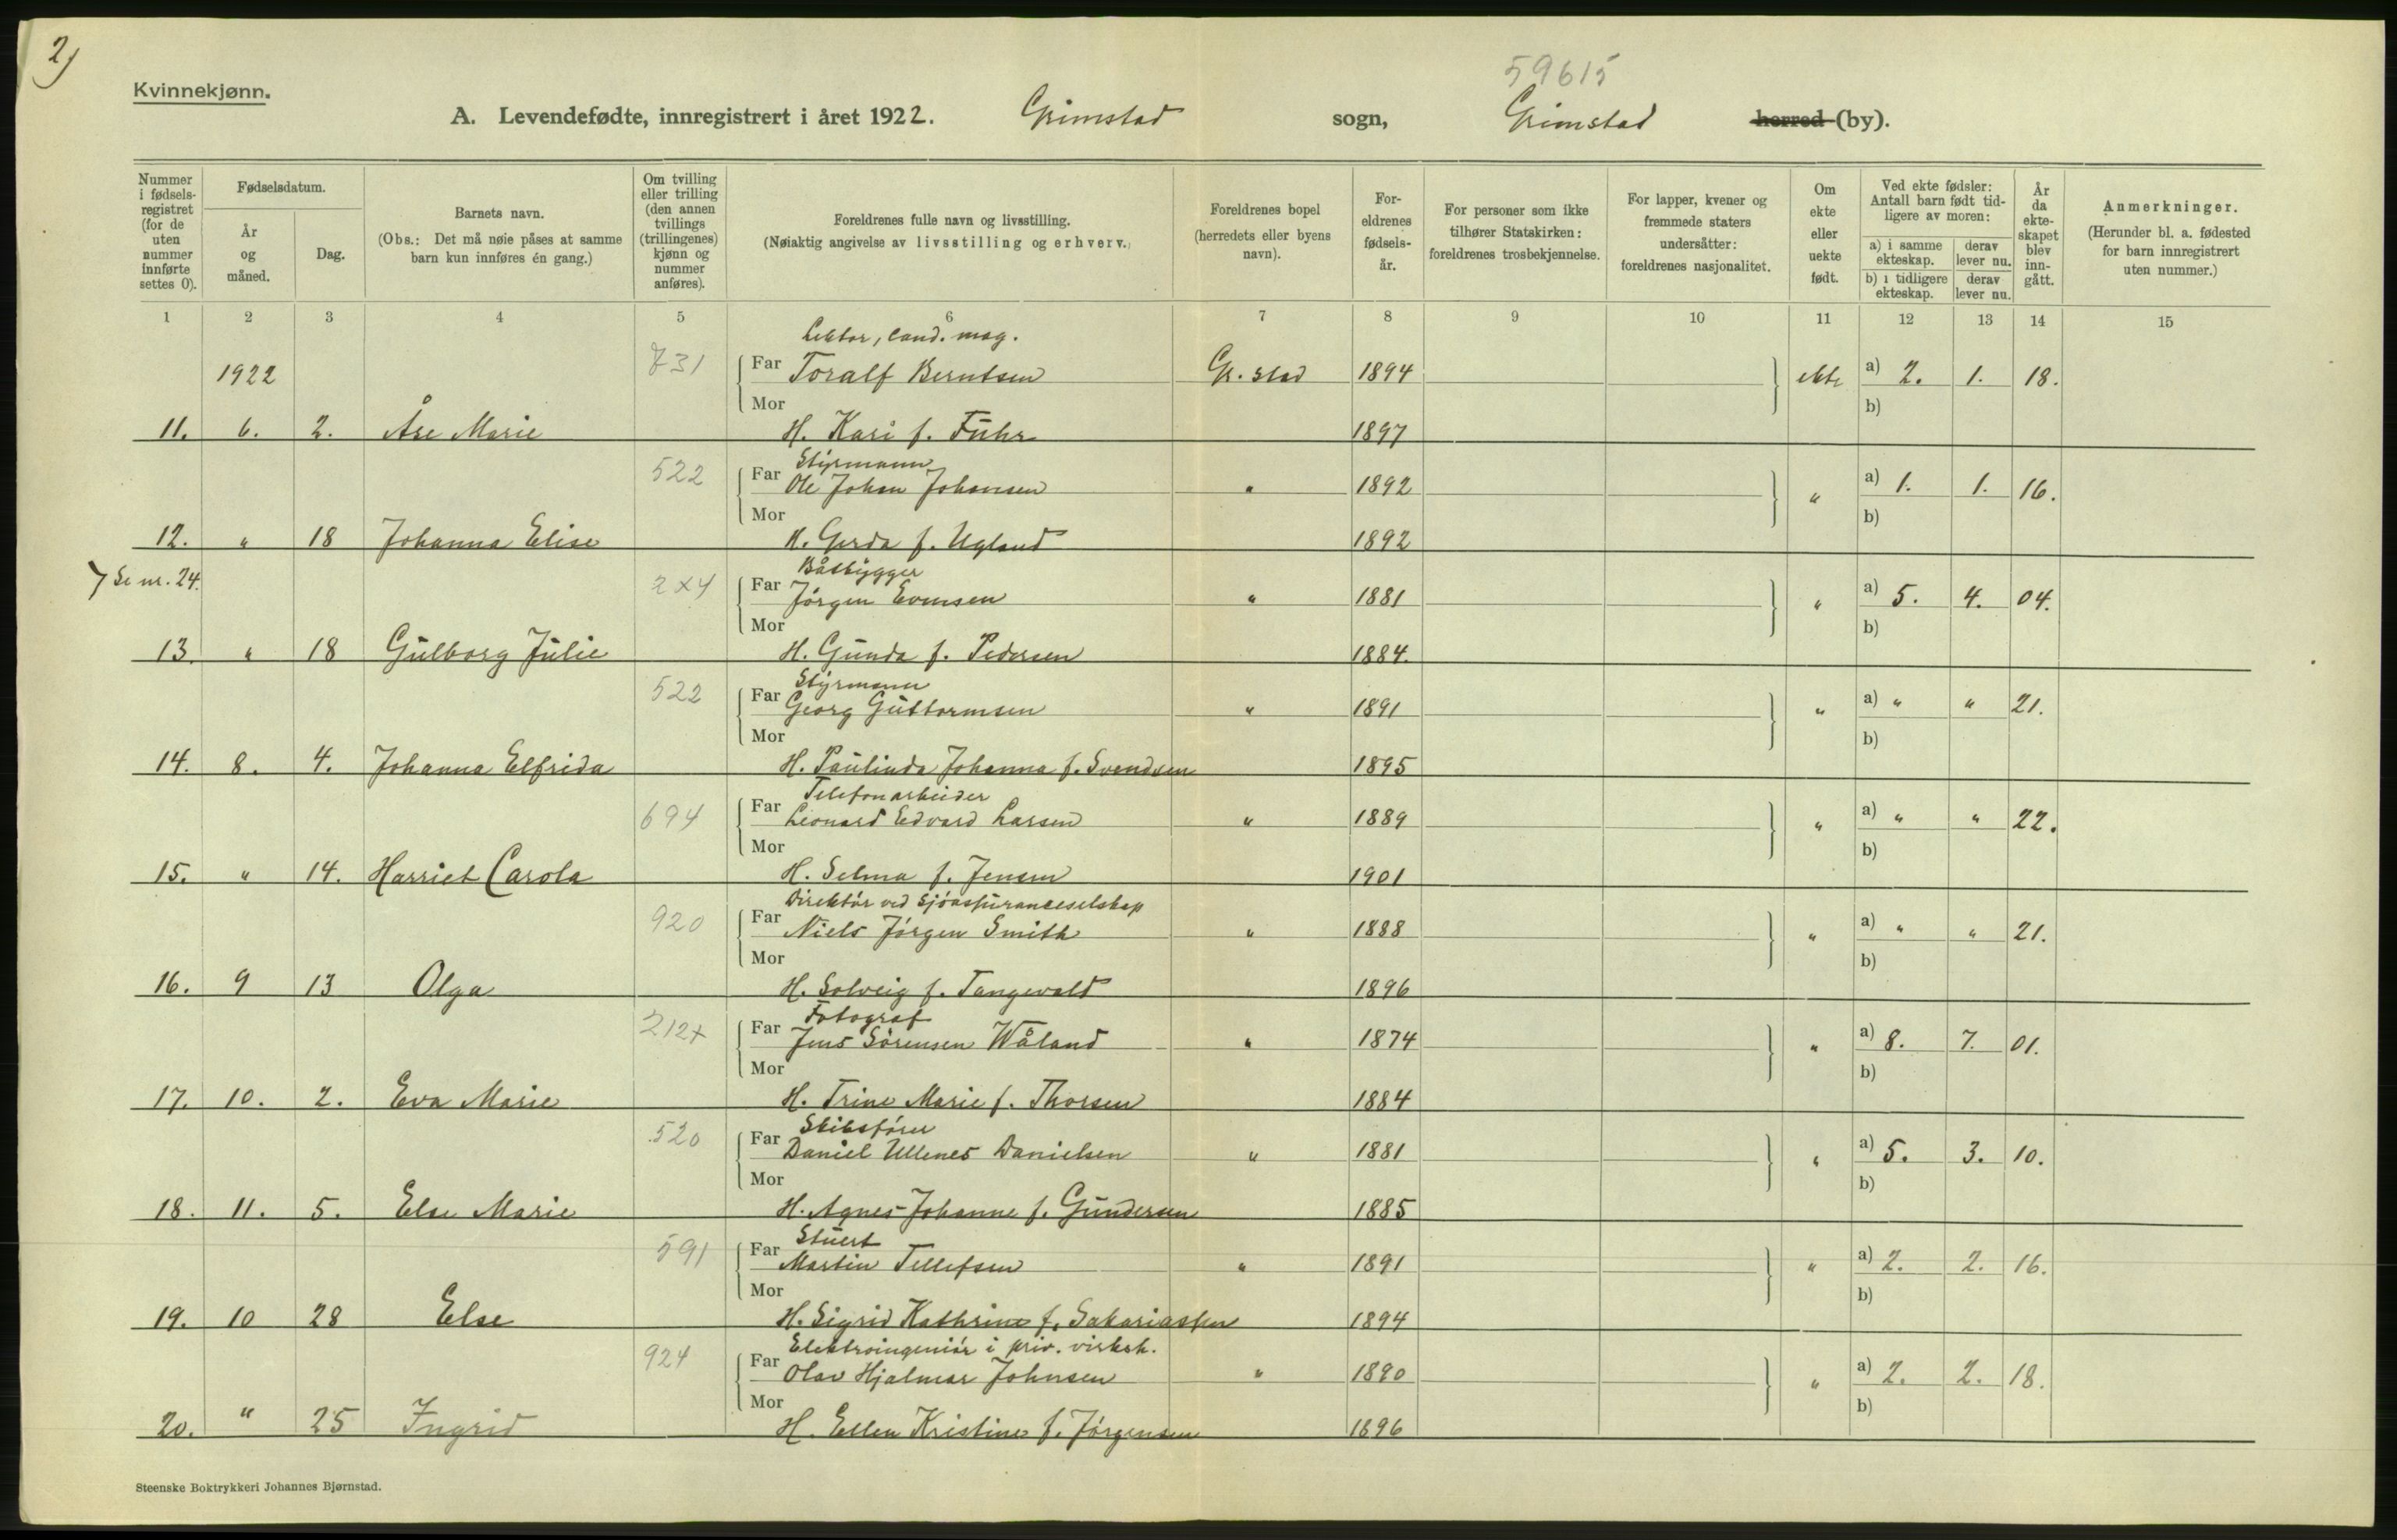 2)
Kvinnekjønn.
59615
A. Levendefødte, innregistrert i året 1922. Grimstad sogn, Grimstad herred (by).
Nummer i fødselsregistret (for de uten nummer innførte settes 0).
Fødselsdatum.
År og måned.
Dag.
Barnets navn.
(Obs.: Det må nøie påses at samme barn kun innføres én gang.)
Om tvilling eller trilling (den annen tvillings (trillingenes) kjønn og nummer anføres).
Foreldrenes fulle navn og livsstilling.
(Nøiaktig angivelse av livsstilling og erhverv.)
Foreldrenes bopel (herredets eller byens navn).
Foreldrenes fødselsår.
For personer som ikke tilhører Statskirken: foreldrenes trosbekjennelse.
For lapper, kvener og fremmede staters undersåtter: foreldrenes nasjonalitet.
Om ekte eller uekte født.
Ved ekte fødsler: Antall barn født tidligere av moren:
a) i samme ekteskap. derav lever nu.
b) i tidligere ekteskap. derav lever nu.
År da ekteskapet blev inngått.
Anmerkninger.
(Herunder bl. a. fødested for barn innregistrert uten nummer.)
1 2 3 4 5 6 7 8 9 10 11 12 13 14 15
Lektor, cand. mag.
1922 731 Far Toralf Berntsen Gr.stad 1894 ekte a) 2. 1. 18.
Mor b)
11. 6. 2. Åse Marie H. Kari f. Führ 1897
Styrmann
522 Far Ole Johan Johansen " 1892 " a) 1. 1. 16.
Mor b)
12. " 18 Johanna Elise H. Gerda f. Ugland 1892
Båtbygger
Se nr. 24. 2x4 Far Jörgen Evensen " 1881 " a) 5. 4. 04.
Mor b)
13. " 18 Gulborg Julie H. Gunda f. Pedersen 1884.
Styrmann
522 Far Georg Guttormsen " 1891 " a) " " 21.
Mor b)
14. 8. 4. Johanna Elfrida H. Paulinda Johanna f. Svendsen 1895
Telefonarbeider
694 Far Leonard Edvard Larsen " 1889 " a) " " 22.
Mor b)
15. " 14. Harriet Carola H. Selma f. Jensen 1901
Direktör ved Sjöassuranceselskap
920 Far Niels Jörgen Smith " 1888 " a) " " 21.
Mor b)
16. 9 13 Olga H. Solveig f. Tangevald 1896
Fotograf
212+ Far Jens Sörensen Wåland " 1874 " a) 8. 7. 01.
Mor b)
17. 10. 2. Eva Marie H. Trine Marie f. Thorsen 1884
Skibsförer
520 Far Daniel Ullenes Danielsen " 1881 " a) 5. 3. 10.
Mor b)
18. 11. 5. Else Marie H. Agnes Johanne f. Gundersen 1885
Stuert
591 Far Martin Tellefsen " 1891 " a) 2. 2. 16.
Mor b)
19. 10 28 Else H. Sigrid Kathrine f. Sakariassen 1894
Elektroingeniör i priv. virksh.
924 Far Olav Hjalmar Johnsen " 1890 " a) 2. 2. 18.
Mor b)
20. " 25 Ingrid H. Ellen Kristine f. Jörgensen 1896
Steenske Boktrykkeri Johannes Bjørnstad.